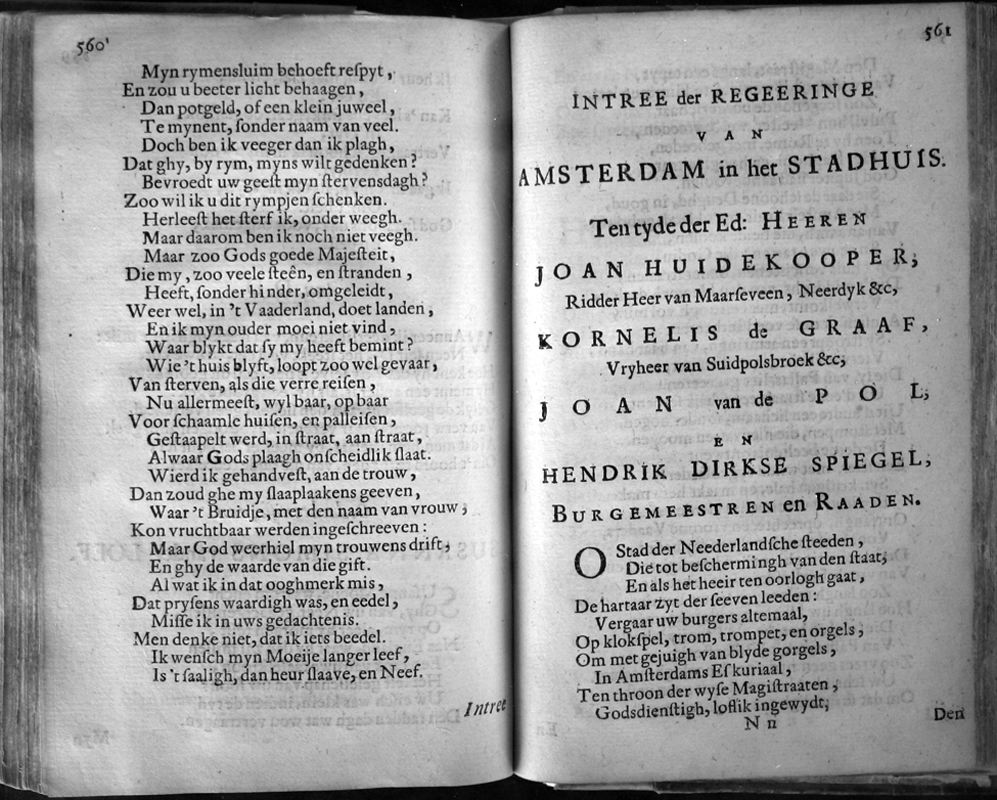 560
Myn rymensluim behoeft reſpyt,
En zou u beeter licht behaagen,
Dan potgeld, of een klein juweel,
Te mynent, ſonder naam van veel.
Doch ben ik veeger dan ik plagh,
Dat ghy, by rym, myns wilt gedenken?
Bevroedt uw geeſt myn ſtervensdagh?
Zoo wil ik u dit rympjen ſchenken.
Herleeſt het ſterf ik, onder weegh.
Maar daarom ben ik noch niet veegh.
Maar zoo Gods goede Majeſteit,
Die my, zoo veele ſteên, en ſtranden,
Heeft, ſonder hinder, omgeleidt,
Weer wel, in 't Vaaderland, doet landen,
En ik myn ouder moei niet vind,
Waar blykt dat ſy my heeft bemint?
Wie 't huis blyft, loopt zoo wel gevaar,
Van ſterven, als die verre reiſen,
Nu allermeeſt, wyl baar, op baar
Voor ſchaamle huiſen, en palleiſen,
Geſtaapelt werd, in ſtraat, aan ſtraat,
Alwaar Gods plaagh onſcheidlik ſlaat.
Wierd ik gehandveſt, aan de trouw,
Dan zoud ghe my ſlaaplaakens geeven,
Waar 't Bruidje, met den naam van vrouw,
Kon vruchtbaar werden ingeſchreeven:
Maar God weerhiel myn trouwens drift,
En ghy de waarde van die gift.
Al wat ik in dat ooghmerk mis,
Dat pryſens waardigh was, en eedel,
Miſſe ik in uws gedachtenis.
Men denke niet, dat ik iets beedel.
Ik wenſch myn Moeije langer leef,
Is 't ſaaligh, dan heur ſlaave, en Neef.
Intree
561
INTREE der REGEERINGE
VAN
AMSTERDAM in het STADHUIS.
Ten tyde der Ed: HEEREN
JOAN HUIDEKOOPER,
Ridder Heer van Maarſeveen, Neerdyk &c,
KORNELIS de GRAAF,
Vryheer van Suidpolsbroek &c,
JOAN van de POL,
EN
HENDRIK DIRKSE SPIEGEL,
BURGEMEESTREN en RAADEN.
O Stad der Neederlandſche ſteeden,
Die tot beſchermingh van den ſtaat,
En als het heeir ten oorlogh gaat,
De hartaar zyt der ſeeven leeden:
Vergaar uw burgers altemaal,
Op klokſpel, trom, trompet, en orgels,
Om met gejuigh van blyde gorgels,
In Amſterdams Eſkuriaal,
Ten throon der wyſe Magiſtraaten,
Godsdienſtigh, loflik ingewydt,
N n
Den